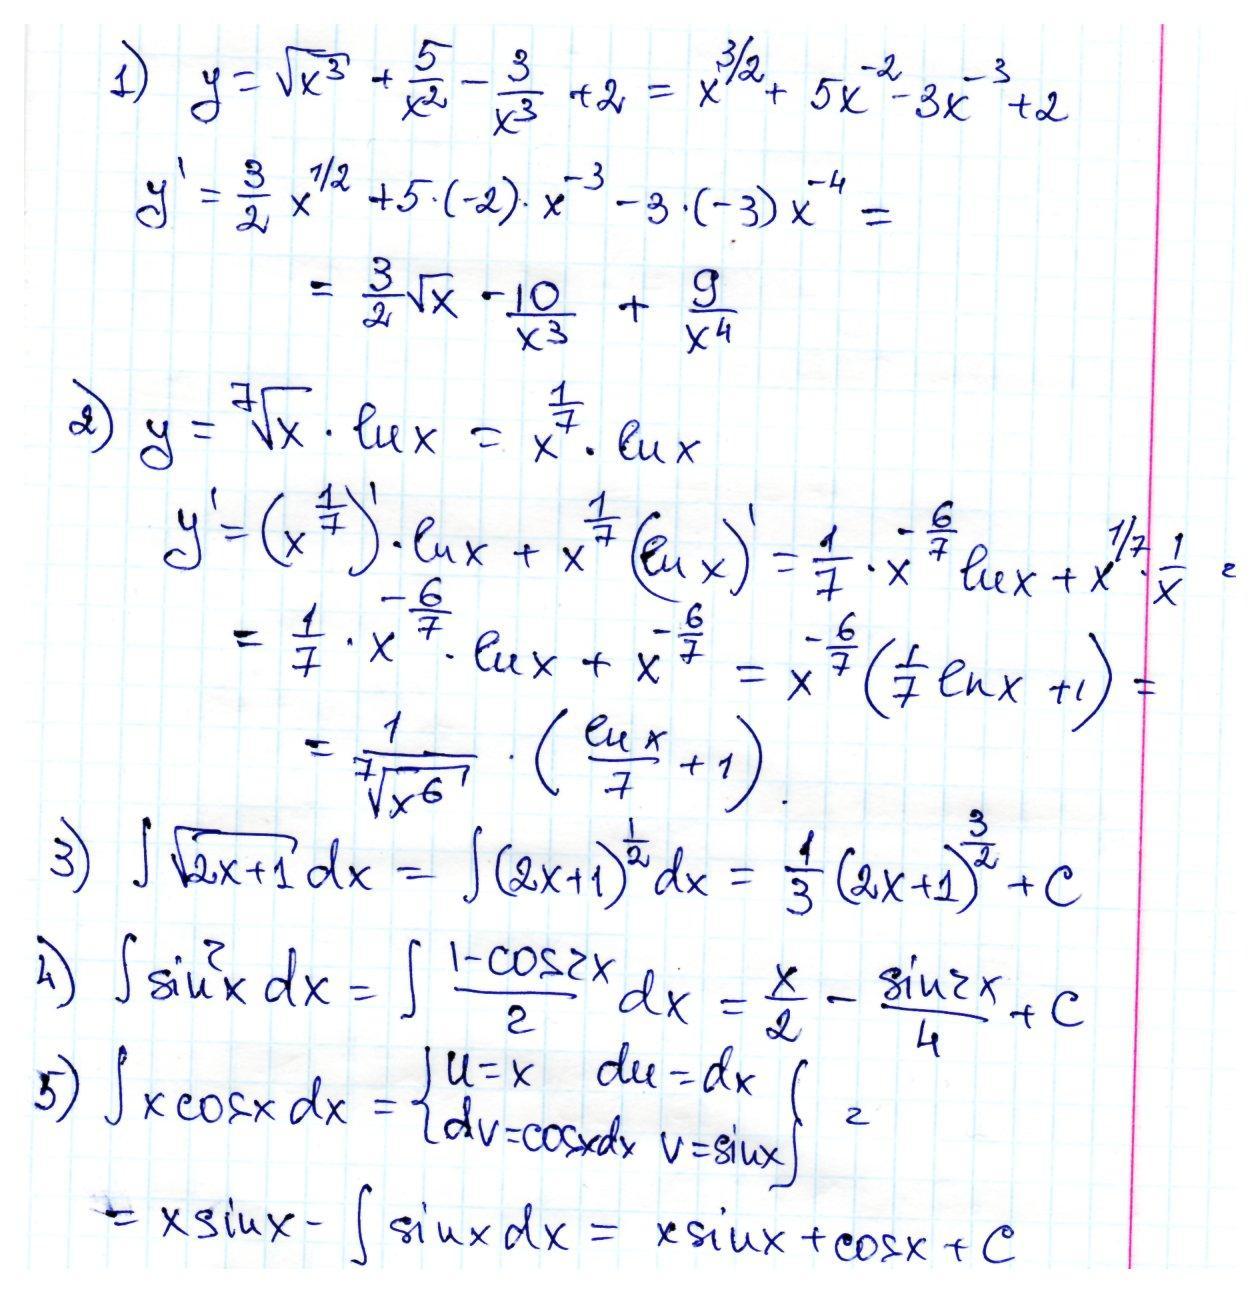 1) y = √x³ + 5/x² - 3/x³ + 2 = x^(3/2) + 5x^(-2) - 3x^(-3) + 2
y' = 3/2 x^(1/2) + 5·(-2)· x^(-3) - 3·(-3) x^(-4) =
= 3/2 √x - 10/x³ + 9/x⁴
2) y = ⁷√x · ln x = x^(1/7) · ln x
y' = (x^(1/7))' · ln x + x^(1/7) (ln x)' = 1/7 · x^(-6/7) ln x + x^(1/7) · 1/x =
= 1/7 · x^(-6/7) · ln x + x^(-6/7) = x^(-6/7) (1/7 ln x + 1) =
= 1/⁷√x⁶ · (ln x/7 + 1).
3) ∫ √(2x+1) dx = ∫ (2x+1)^(1/2) dx = 1/3 (2x+1)^(3/2) + C
4) ∫ sin²x dx = ∫ (1-cos2x)/2 dx = x/2 - sin2x/4 + C
5) ∫ x cosx dx = { u = x du = dx
dv = cosxdx v = sinx } =
= x sinx - ∫ sinx dx = x sinx + cosx + C